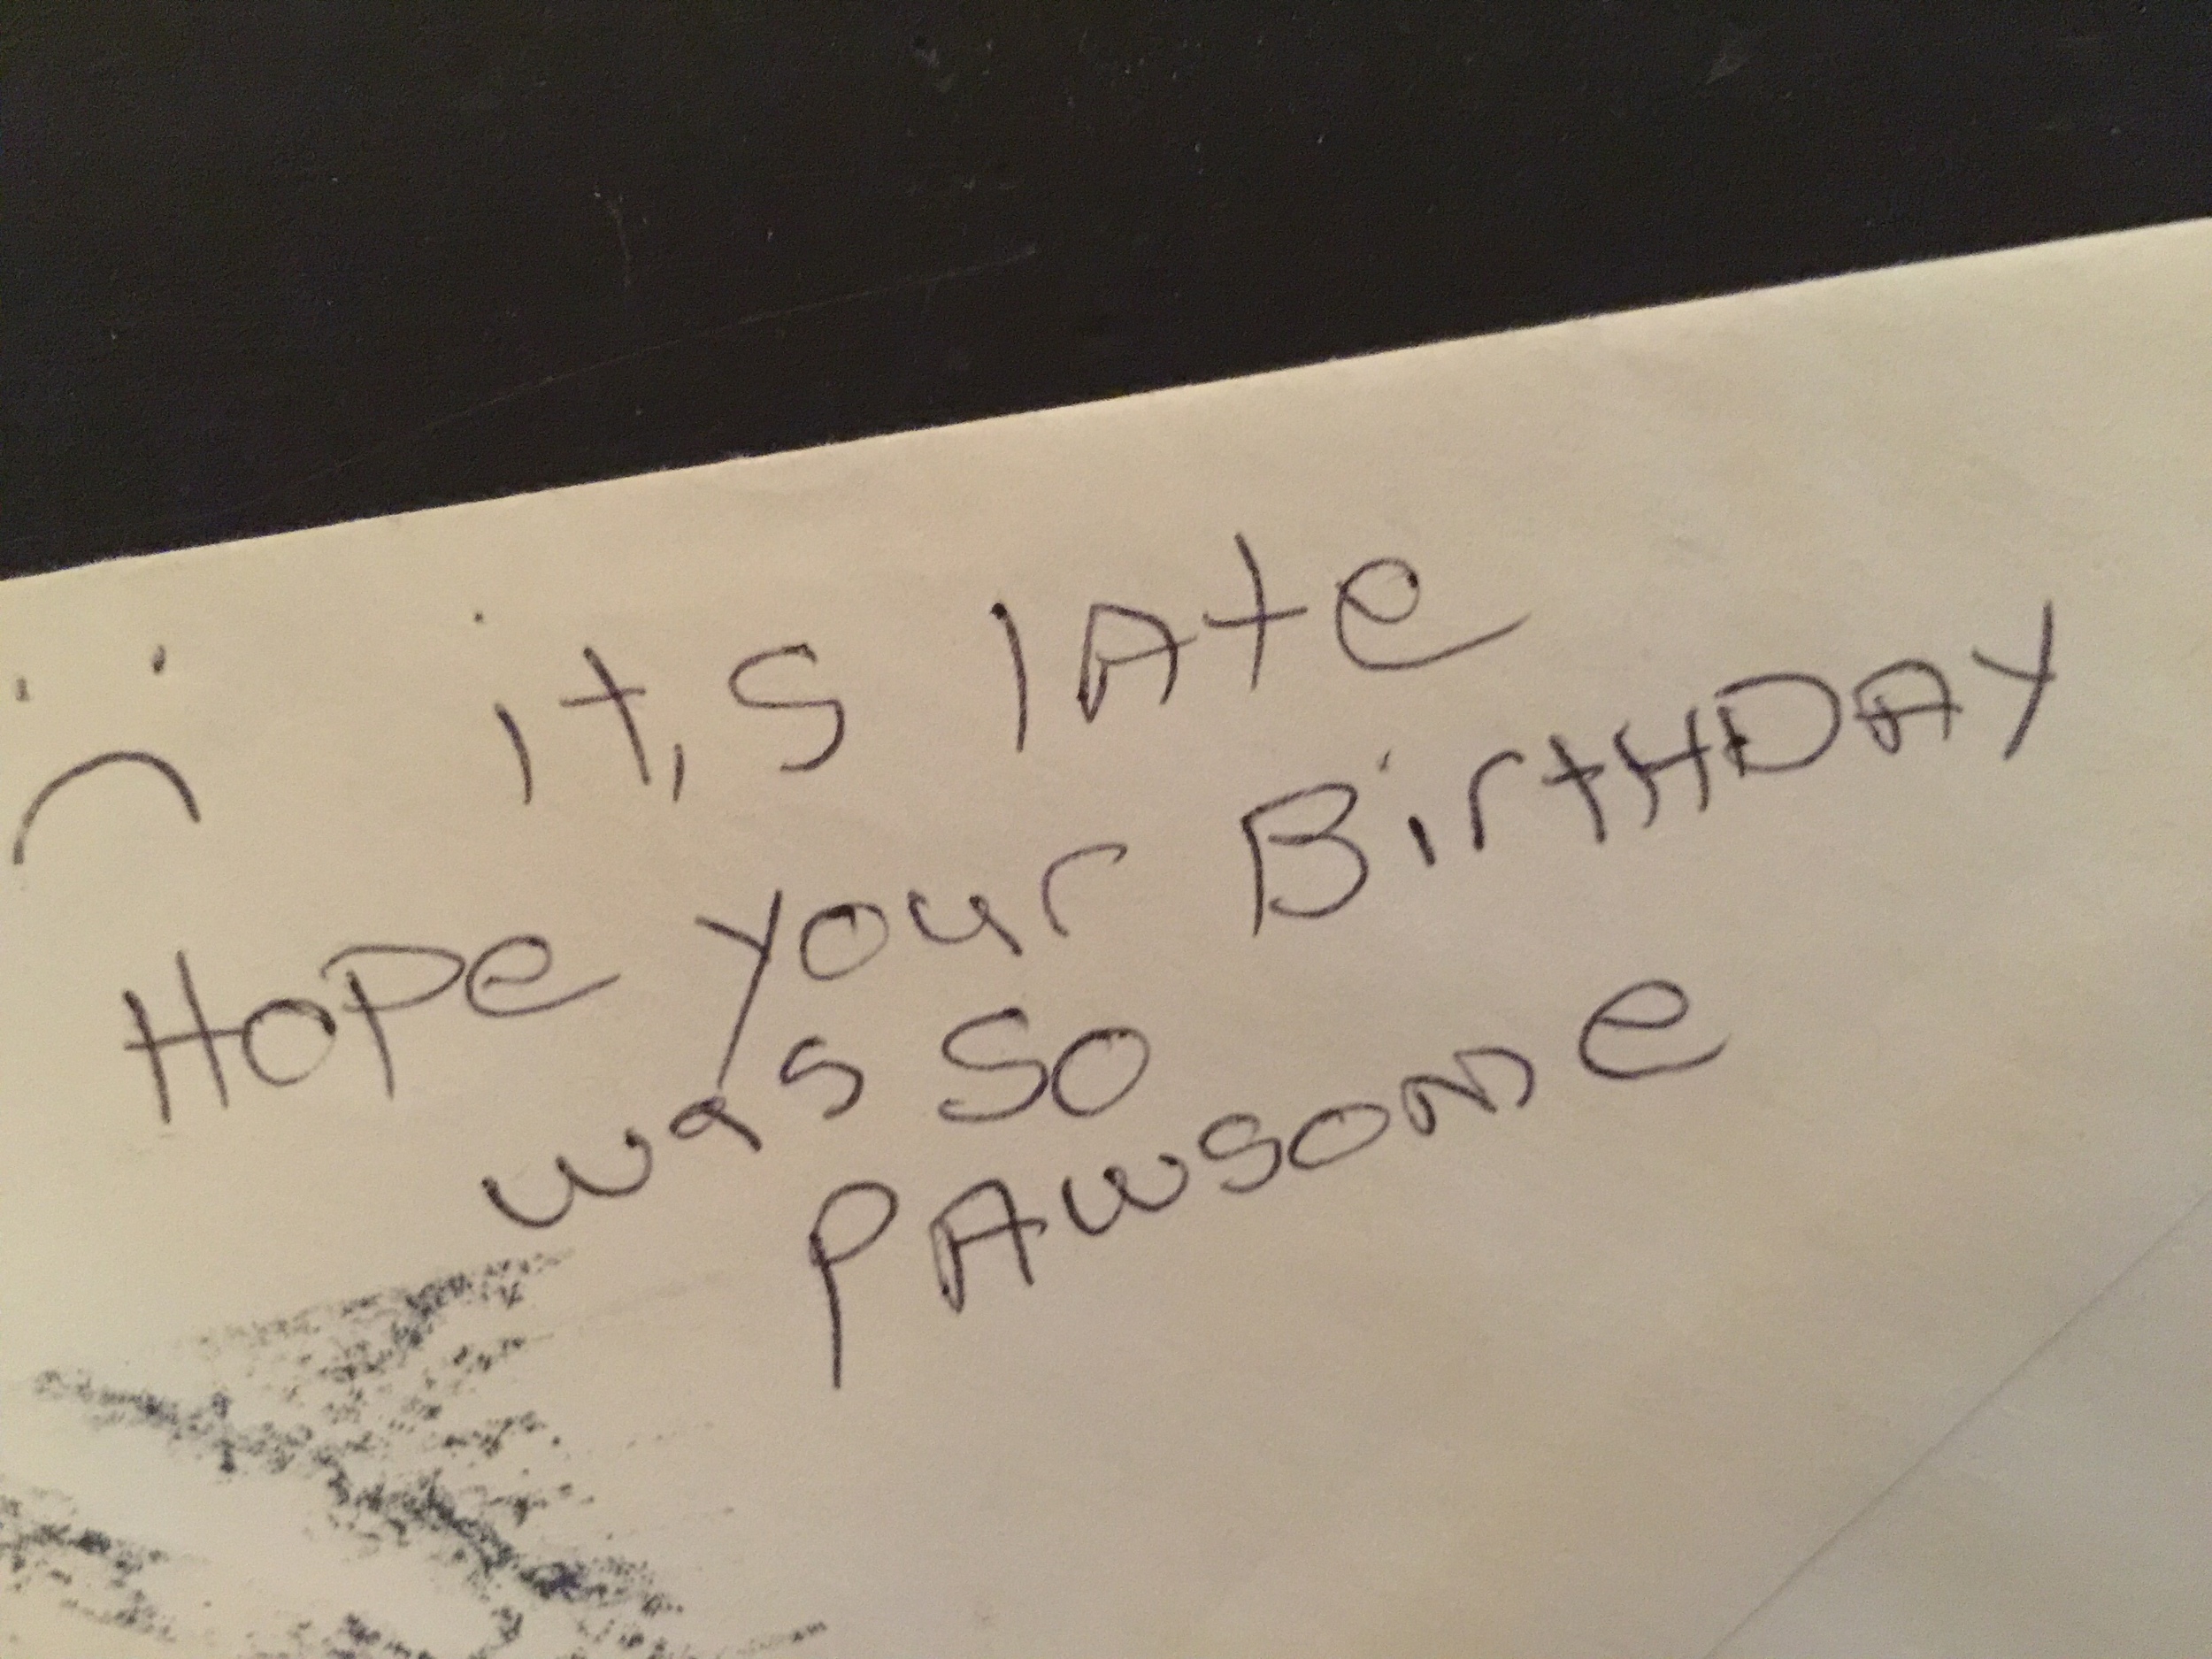 it,s lAte
Hope your BirtHDAY
was So
PAwsome